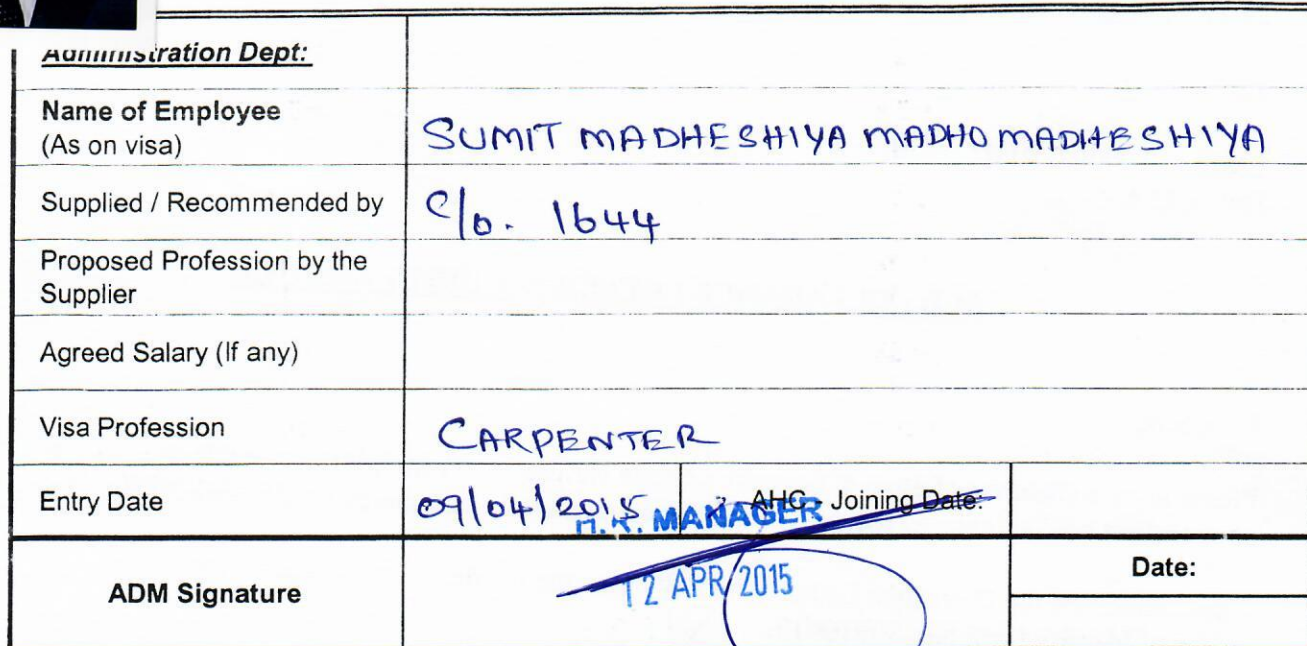 Administration Dept:
Name of Employee
(As on visa)
SUMIT MADHESHIYA MADHO MADHESHIYA
Supplied / Recommended by
C/o. 1644
Proposed Profession by the
Supplier
Agreed Salary (If any)
Visa Profession
CARPENTER
Entry Date
09/04/2015
AHG - Joining Date:
H.R. MANAGER
ADM Signature
12 APR 2015
Date: